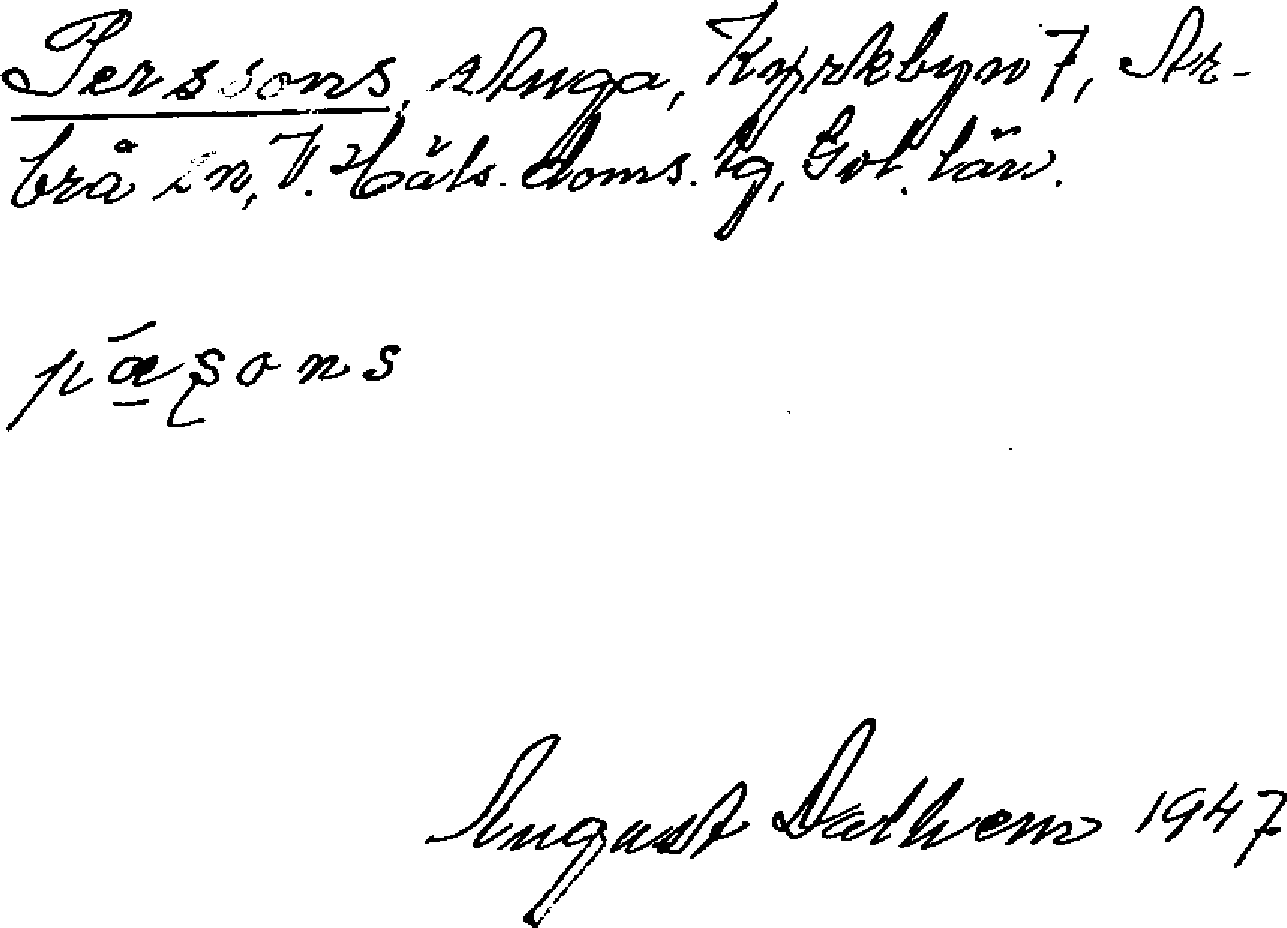 Perssons, stuga, Kyrkbyn 7, Ar-
brå sn, V. Häls. doms. lg, Gvl. län.
pǽ̠ʂons
August Dalhem 1947